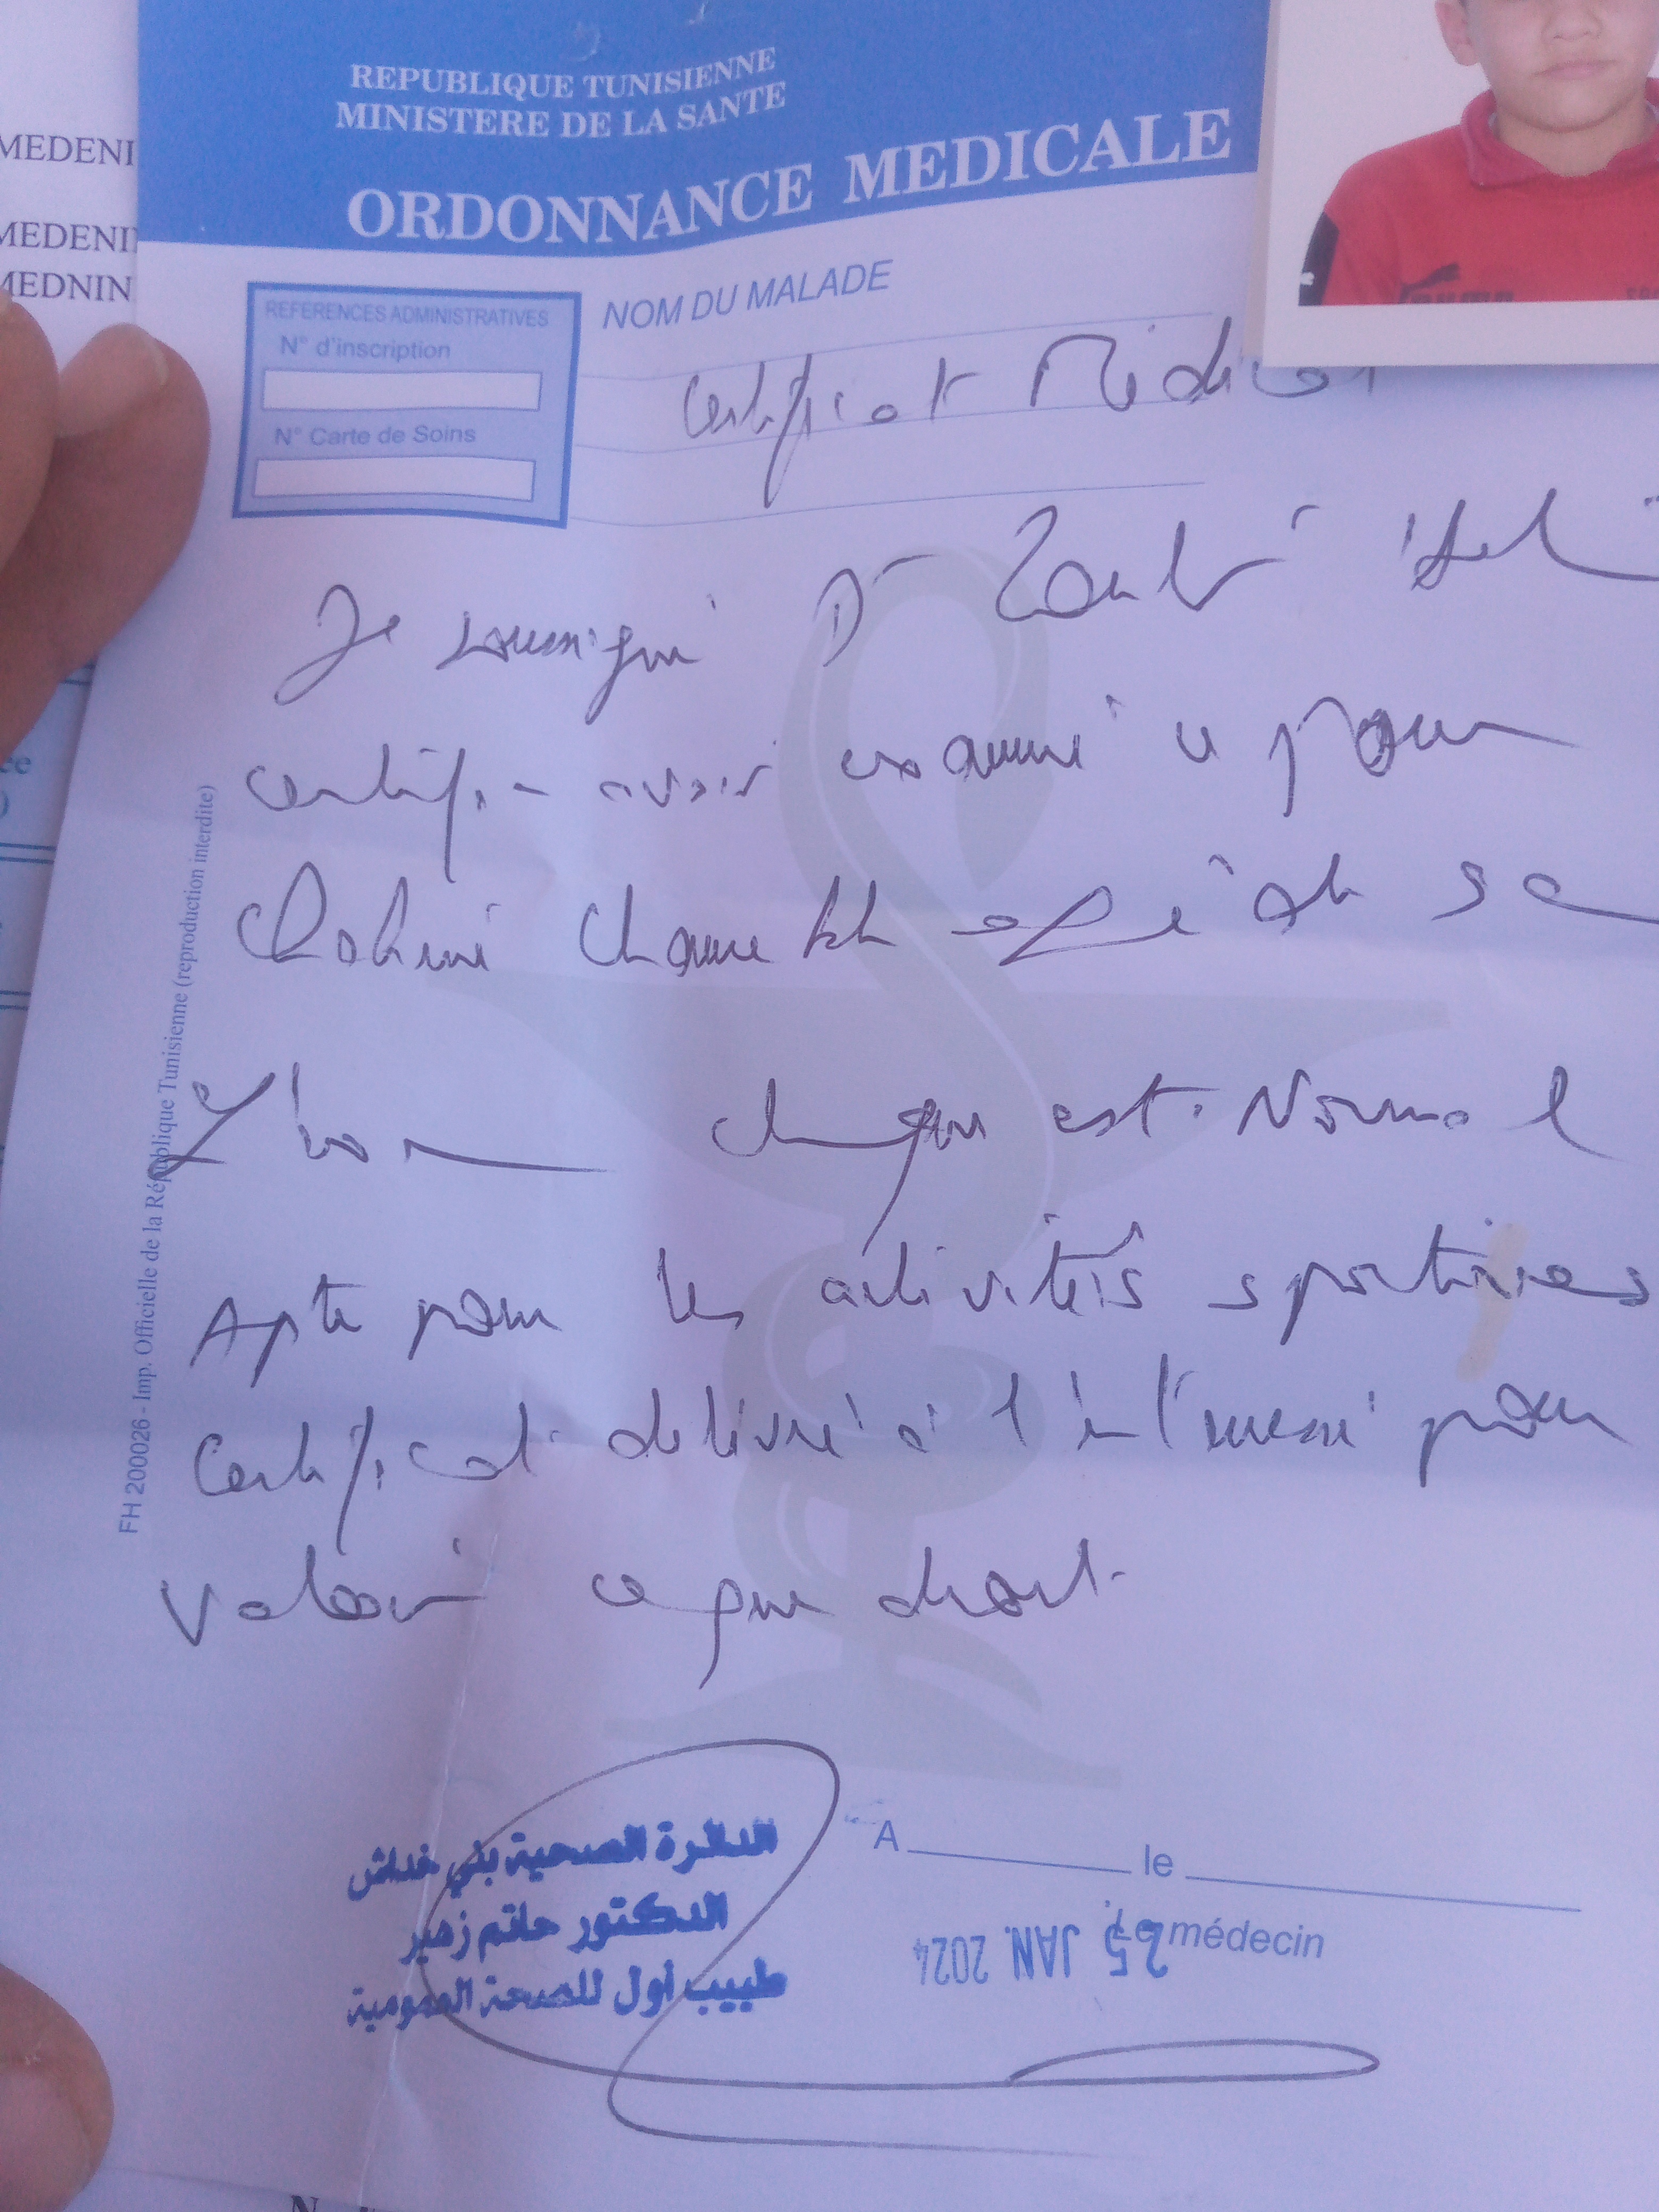 REPUBLIQUE TUNISIENNE
MINISTERE DE LA SANTE
ORDONNANCE MEDICALE
MEDENI
MEDENI
MEDNIN
REFERENCES ADMINISTRATIVES
N° d'inscription
N° Carte de Soins
NOM DU MALADE
Certificat Médical
Je soussigné Dr
certifie avoir examiné ce jour
est Normal
Apte pour les activités sportives
Certificat délivré à l'intéressé pour
valoir ce que droit.
FH 200026 - Imp. Officielle de la République Tunisienne (reproduction interdite)
الدائرة الصحية بني خداش
الدكتور حاتم زهير
طبيب أول للصحة العمومية
A le
Le médecin
25 JAN. 2024